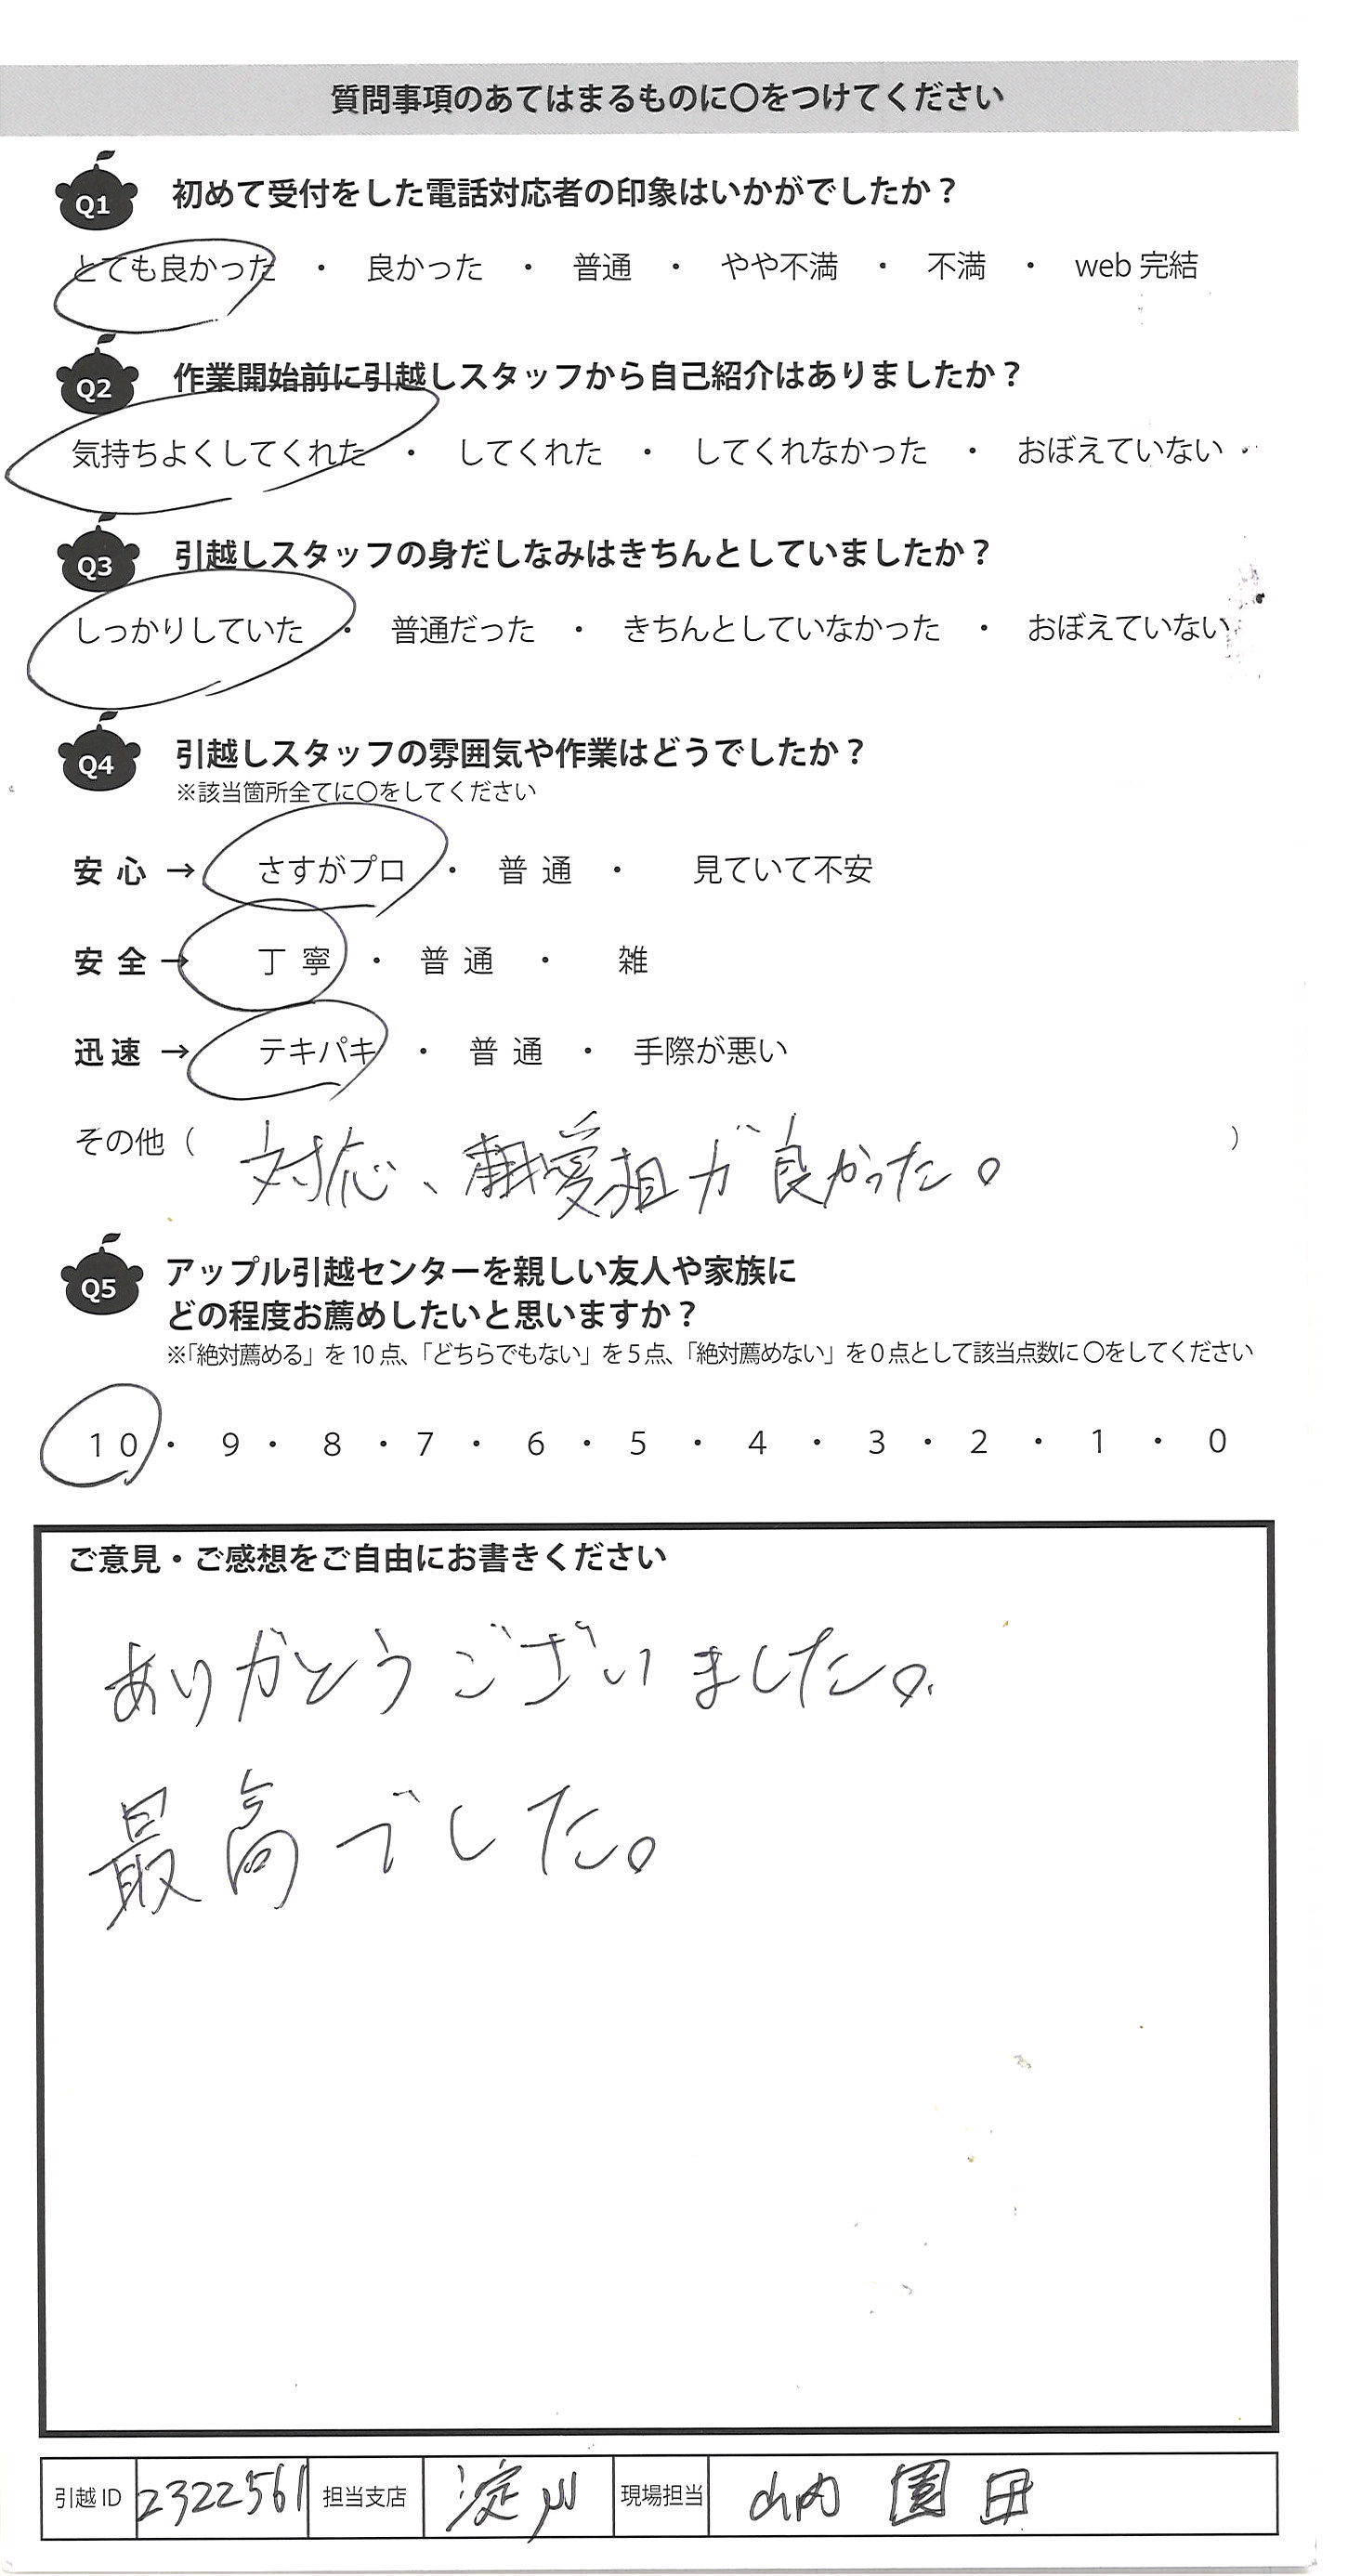 質問事項のあてはまるものに〇をつけてください
Q1 初めて受付をした電話対応者の印象はいかがでしたか？
とても良かった ・ 良かった ・ 普通 ・ やや不満 ・ 不満 ・ web 完結
Q2 作業開始前に引越しスタッフから自己紹介はありましたか？
気持ちよくしてくれた ・ してくれた ・ してくれなかった ・ おぼえていない
Q3 引越しスタッフの身だしなみはきちんとしていましたか？
しっかりしていた ・ 普通だった ・ きちんとしていなかった ・ おぼえていない
Q4 引越しスタッフの雰囲気や作業はどうでしたか？
※該当箇所全てに〇をしてください
安心 → さすがプロ ・ 普通 ・ 見ていて不安
安全 → 丁寧 ・ 普通 ・ 雑
迅速 → テキパキ ・ 普通 ・ 手際が悪い
その他（ 対応、愛想が良かった。 ）
Q5 アップル引越センターを親しい友人や家族に
どの程度お薦めしたいと思いますか？
※「絶対薦める」を 10 点、「どちらでもない」を 5 点、「絶対薦めない」を 0 点として該当点数に 〇をしてください
10 ・ 9 ・ 8 ・ 7 ・ 6 ・ 5 ・ 4 ・ 3 ・ 2 ・ 1 ・ 0
ご意見・ご感想をご自由にお書きください
ありがとうございました。
最高でした。
引越 ID 2322561 担当支店 淀川 現場担当 山内 園田